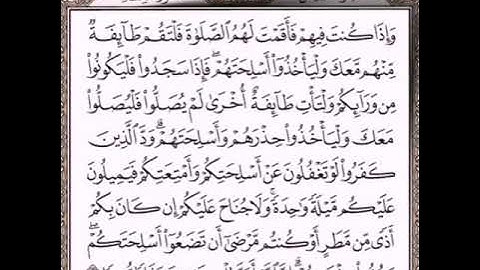 وَإِذَا كُنتَ فِيهِمْ فَأَقَمْتَ لَهُمُ ٱلصَّلَوٰةَ فَلْتَقُمْ طَآئِفَةٌ
مِّنْهُم مَّعَكَ وَلْيَأْخُذُوٓا۟ أَسْلِحَتَهُمْ ۖ فَإِذَا سَجَدُوا۟ فَلْيَكُونُوا۟
مِن وَرَآئِكُمْ وَلْتَأْتِ طَآئِفَةٌ أُخْرَىٰ لَمْ يُصَلُّوا۟ فَلْيُصَلُّوا۟
مَعَكَ وَلْيَأْخُذُوا۟ حِذْرَهُمْ وَأَسْلِحَتَهُمْ ۗ وَدَّ ٱلَّذِينَ
كَفَرُوا۟ لَوْ تَغْفُلُونَ عَنْ أَسْلِحَتِكُمْ وَأَمْتِعَتِكُمْ فَيَمِيلُونَ
عَلَيْكُم مَّيْلَةً وَٰحِدَةً ۚ وَلَا جُنَاحَ عَلَيْكُمْ إِن كَانَ بِكُمْ
أَذًى مِّن مَّطَرٍ أَوْ كُنتُم مَّرْضَىٰٓ أَن تَضَعُوٓا۟ أَسْلِحَتَكُمْ ۖ